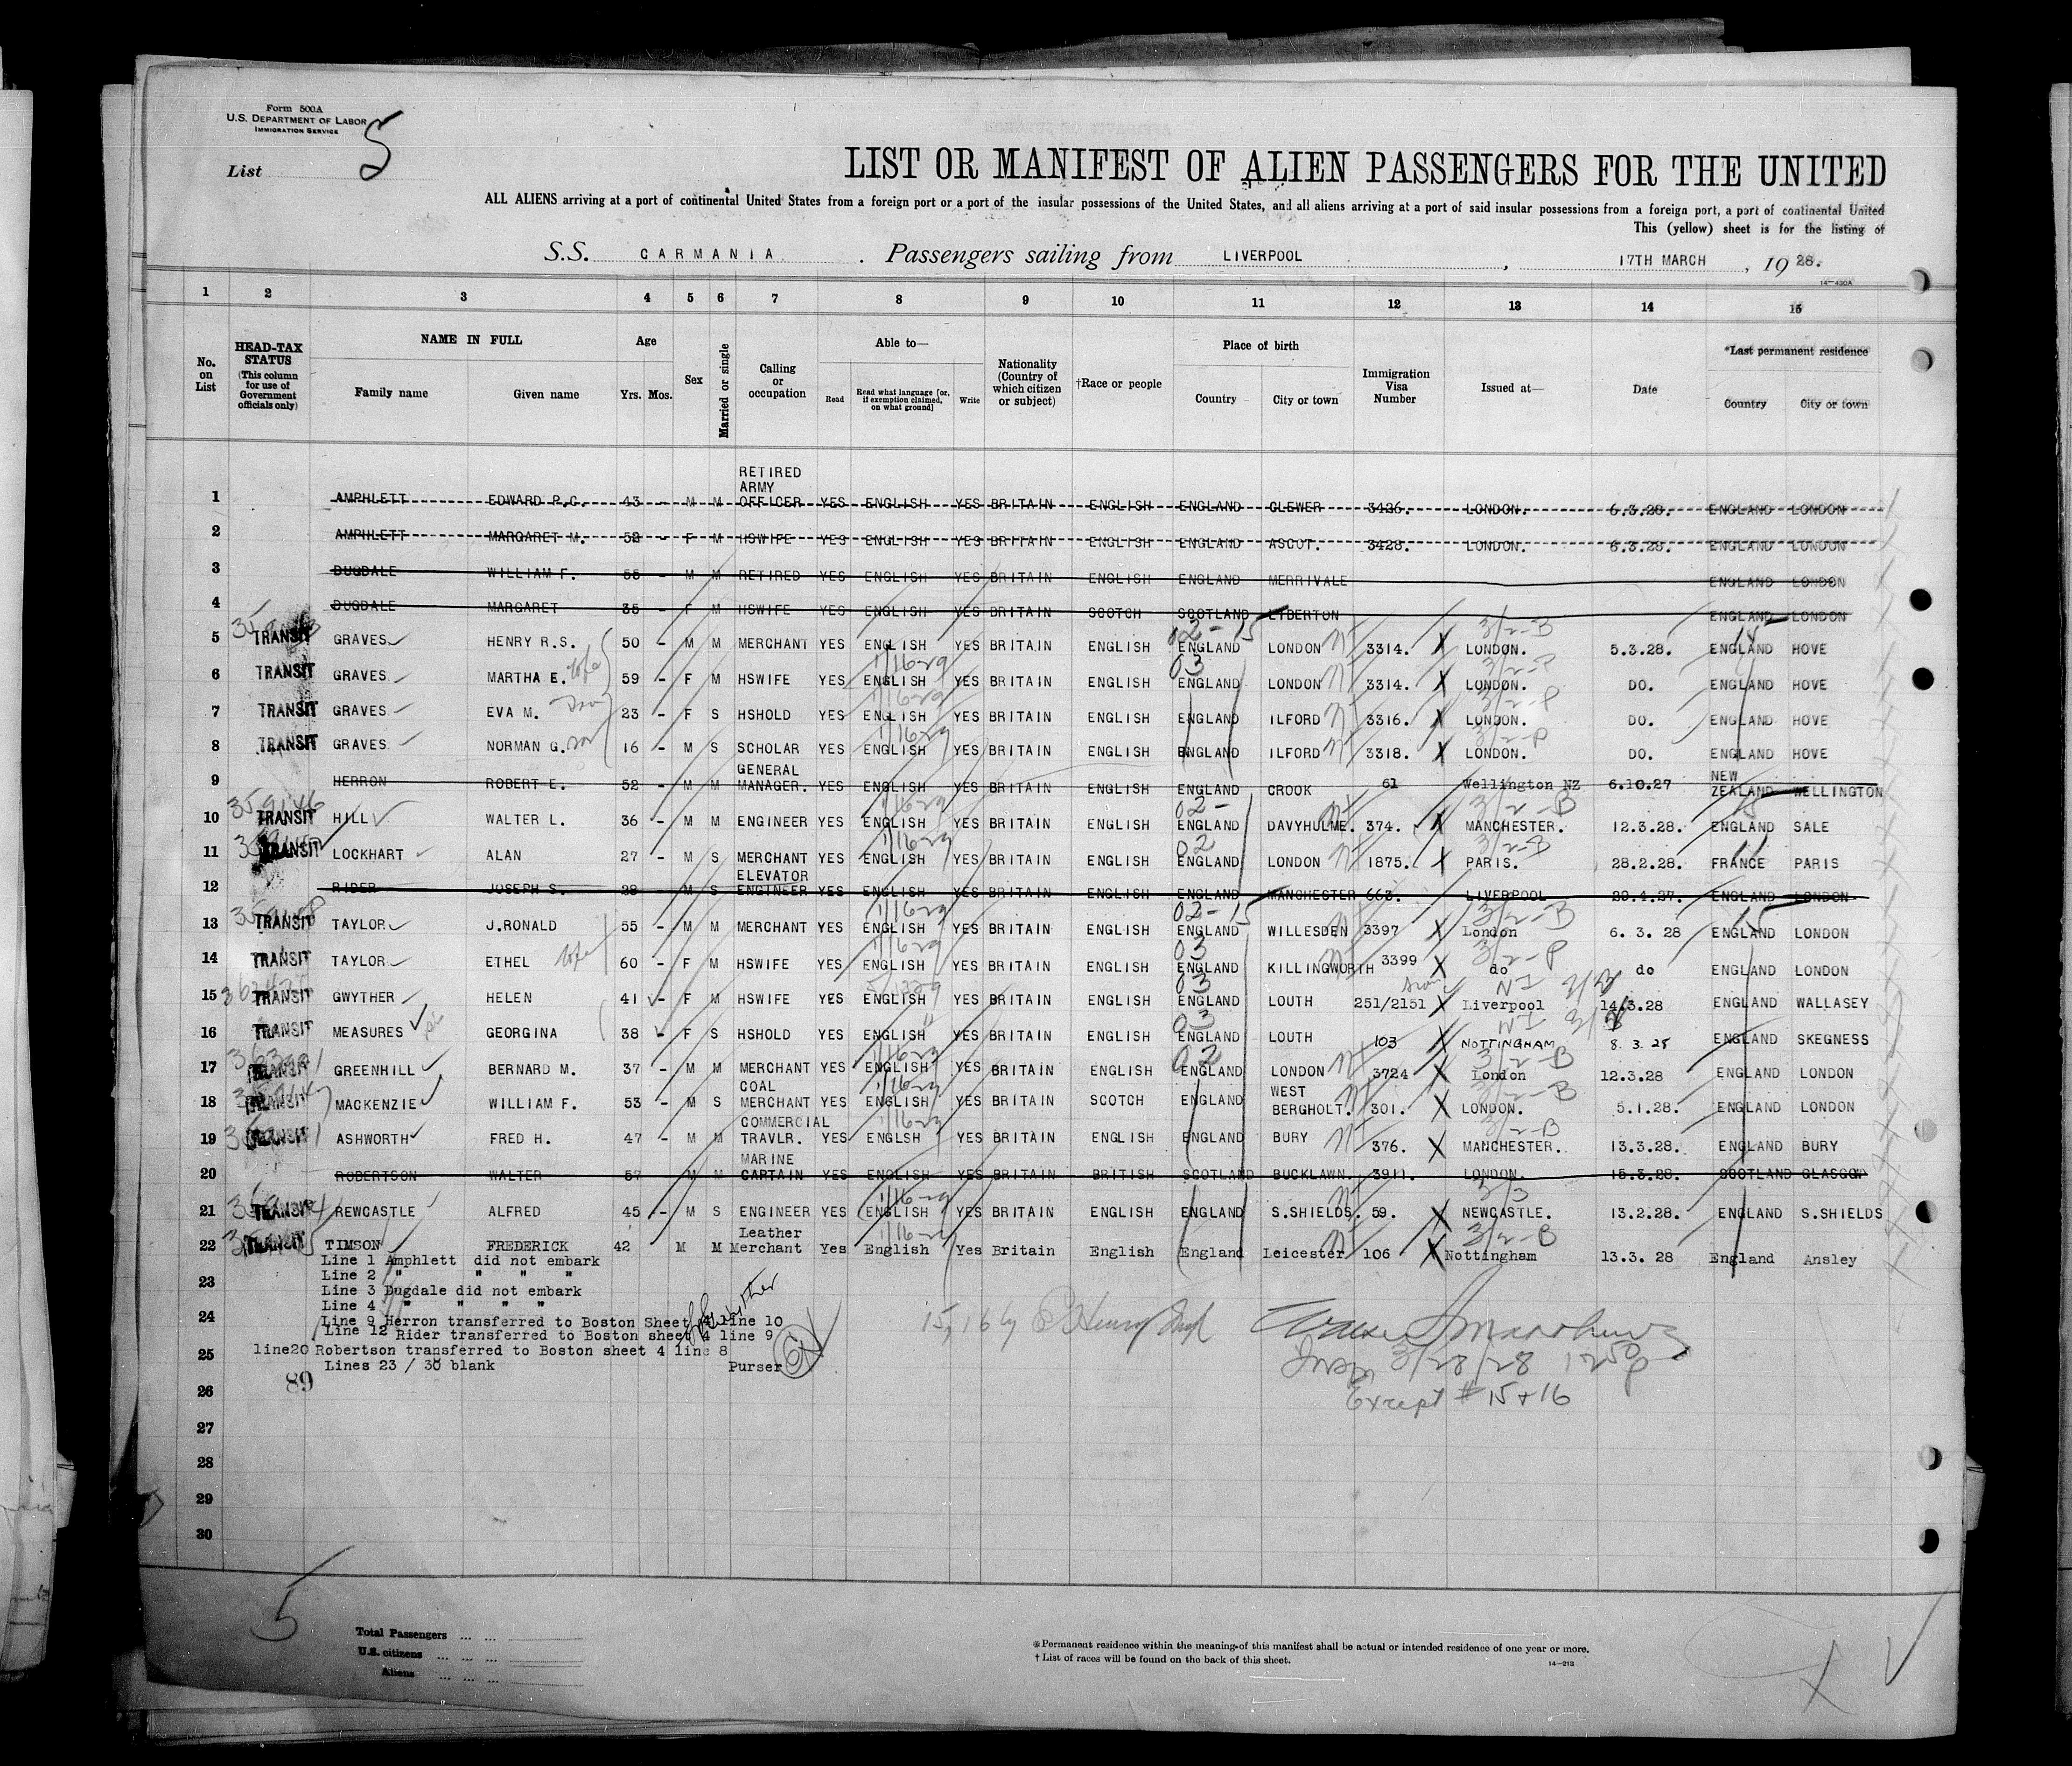 Form 500A
U.S. DEPARTMENT OF LABOR
IMMIGRATION SERVICE
List 5
LIST OR MANIFEST OF ALIEN PASSENGERS FOR THE UNITED
ALL ALIENS arriving at a port of continental United States from a foreign port or a port of the insular possessions of the United States, and all aliens arriving at a port of said insular possessions from a foreign port, a port of continental United
This (yellow) sheet is for the listing of
S.S. CARMANIA . Passengers sailing from LIVERPOOL , 17TH MARCH , 19 28.
14-430A
1 2 3 4 5 6 7 8 9 10 11 12 13 14 15
No. on List HEAD-TAX STATUS (This column for use of Government officials only) NAME IN FULL Family name Given name Age Yrs. Mos. Sex Married or single Calling or occupation Able to— Read Read what language [or, if exemption claimed, on what ground] Write Nationality (Country of which citizen or subject) †Race or people Place of birth Country City or town Immigration Visa Number Issued at— Date *Last permanent residence Country City or town
1 AMPHLETT EDWARD P.C. 43 - M M RETIRED ARMY OFFICER YES ENGLISH YES BRITAIN ENGLISH ENGLAND CLEWER 3426. LONDON. 6.3.28. ENGLAND LONDON
2 AMPHLETT MARGARET M. 52 - F M HSWIFE YES ENGLISH YES BRITAIN ENGLISH ENGLAND ASCOT. 3428. LONDON. 6.3.28. ENGLAND LONDON
3 DUGDALE WILLIAM F. 55 - M M RETIRED YES ENGLISH YES BRITAIN ENGLISH ENGLAND MERRIVALE ENGLAND LONDON
4 DUGDALE MARGARET 35 - F M HSWIFE YES ENGLISH YES BRITAIN SCOTCH SCOTLAND LYBERTON ENGLAND LONDON
5 TRANSIT GRAVES HENRY R.S. 50 - M M MERCHANT YES ENGLISH YES BRITAIN ENGLISH ENGLAND LONDON 3314. X LONDON. 3/2-B 5.3.28. ENGLAND HOVE
6 TRANSIT GRAVES MARTHA E. wife 59 - F M HSWIFE YES 1/16-29 ENGLISH YES BRITAIN ENGLISH 03 ENGLAND LONDON 3314. X LONDON. 3/2-P DO. ENGLAND HOVE
7 TRANSIT GRAVES EVA M. 23 - F S HSHOLD YES 1/16-29 ENGLISH YES BRITAIN ENGLISH ENGLAND ILFORD 3316. X LONDON. 3/2-P DO. ENGLAND HOVE
8 TRANSIT GRAVES NORMAN G. son 16 - M S SCHOLAR YES 1/16-29 ENGLISH YES BRITAIN ENGLISH ENGLAND ILFORD 3318. X LONDON. 3/2-P DO. ENGLAND HOVE
9 HERRON ROBERT E. 52 - M M GENERAL MANAGER. YES ENGLISH YES BRITAIN ENGLISH ENGLAND CROOK 61 Wellington NZ 6.10.27 NEW ZEALAND WELLINGTON
10 359146 TRANSIT HILL WALTER L. 36 - M M ENGINEER YES 1/16-29 ENGLISH YES BRITAIN ENGLISH 02- ENGLAND DAVYHULME. 374. X MANCHESTER. 3/2-B 12.3.28. ENGLAND SALE
11 TRANSIT LOCKHART ALAN 27 - M S MERCHANT YES 1/16-29 ENGLISH YES BRITAIN ENGLISH 02 ENGLAND LONDON 1875. X PARIS. 3/2-B 28.2.28. FRANCE PARIS
12 RIDER JOSEPH S. 28 - M S ELEVATOR ENGINEER YES ENGLISH YES BRITAIN ENGLISH ENGLAND MANCHESTER 663. LIVERPOOL 29.4.27. ENGLAND LONDON
13 TRANSIT TAYLOR J.RONALD 55 - M M MERCHANT YES 1/16-29 ENGLISH YES BRITAIN ENGLISH 02-15 ENGLAND WILLESDEN 3397 X London 3/2-B 6. 3. 28 ENGLAND LONDON
14 TRANSIT TAYLOR ETHEL wife 60 - F M HSWIFE YES 1/16-29 ENGLISH YES BRITAIN ENGLISH 03 ENGLAND KILLINGWORTH 3399 X do 3/2-P do ENGLAND LONDON
15 TRANSIT GWYTHER HELEN 41 - F M HSWIFE YES ENGLISH YES BRITAIN ENGLISH 03 ENGLAND LOUTH 251/2151 X Liverpool 14/3.28 ENGLAND WALLASEY
16 TRANSIT MEASURES GEORGINA 38 F S HSHOLD YES ENGLISH YES BRITAIN ENGLISH 03 ENGLAND LOUTH 103 X NOTTINGHAM 8. 3. 28 ENGLAND SKEGNESS
17 TRANSIT GREENHILL BERNARD M. 37 - M M MERCHANT YES 1/16-29 ENGLISH YES BRITAIN ENGLISH 02 ENGLAND LONDON 3724 X London 3/2-B 12.3.28 ENGLAND LONDON
18 TRANSIT MACKENZIE WILLIAM F. 53 - M S COAL MERCHANT YES 1/16-29 ENGLISH YES BRITAIN SCOTCH ENGLAND WEST BERGHOLT. 301. X LONDON. 3/2-B 5.1.28. ENGLAND LONDON
19 TRANSIT ASHWORTH FRED H. 47 - M M COMMERCIAL TRAVLR. YES 1/16-29 ENGLSH YES BRITAIN ENGLISH ENGLAND BURY 376. X MANCHESTER. 3/2-B 13.3.28. ENGLAND BURY
20 ROBERTSON WALTER 57 M M MARINE CAPTAIN YES ENGLISH YES BRITAIN BRITISH SCOTLAND BUCKLAWN. 3911. LONDON. 15.3.28. SCOTLAND GLASGOW
21 TRANSIT REWCASTLE ALFRED 45 - M S ENGINEER YES 1/16-29 ENGLISH YES BRITAIN ENGLISH ENGLAND S.SHIELDS. 59. X NEWCASTLE. 3/3 13.2.28. ENGLAND S.SHIELDS
22 TRANSIT TIMSON FREDERICK 42 M M Leather Merchant Yes 1/16-29 English Yes Britain English England Leicester 106 X Nottingham 3/2-B 13.3. 28 England Ansley
Line 1 Amphlett did not embark
Line 2 " " " "
23 Line 3 Dugdale did not embark
Line 4 " " " "
24 Line 9 Herron transferred to Boston Sheet 4 line 10
Line 12 Rider transferred to Boston sheet 4 line 9
25 line20 Robertson transferred to Boston sheet 4 line 8
Lines 23 / 30 blank Purser
Insp 3/28/28 1250p
89
26 Except #15+16
27
28
29
30
5
Total Passengers ... ...
U.S. citizens ... ...
Aliens ... ...
※Permanent residence within the meaning of this manifest shall be actual or intended residence of one year or more.
† List of races will be found on the back of this sheet.
14-213